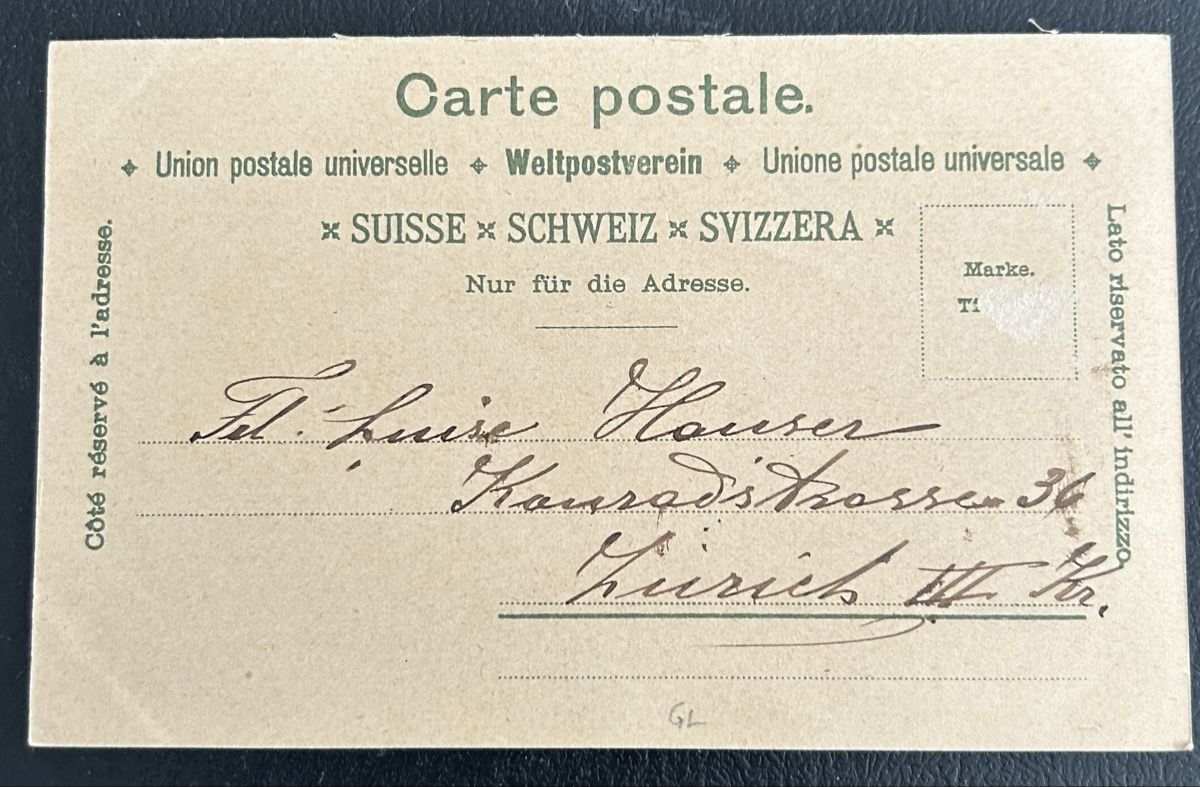 Carte postale.
Union postale universelle Weltpostverein Unione postale universale
SUISSE SCHWEIZ SVIZZERA
Nur für die Adresse.
Côté réservé à l'adresse.
Marke.
Lato riservato all' indirizzo.
Frl. Luise Hauser
Konradstrasse 36
Zürich III Kr.
GL